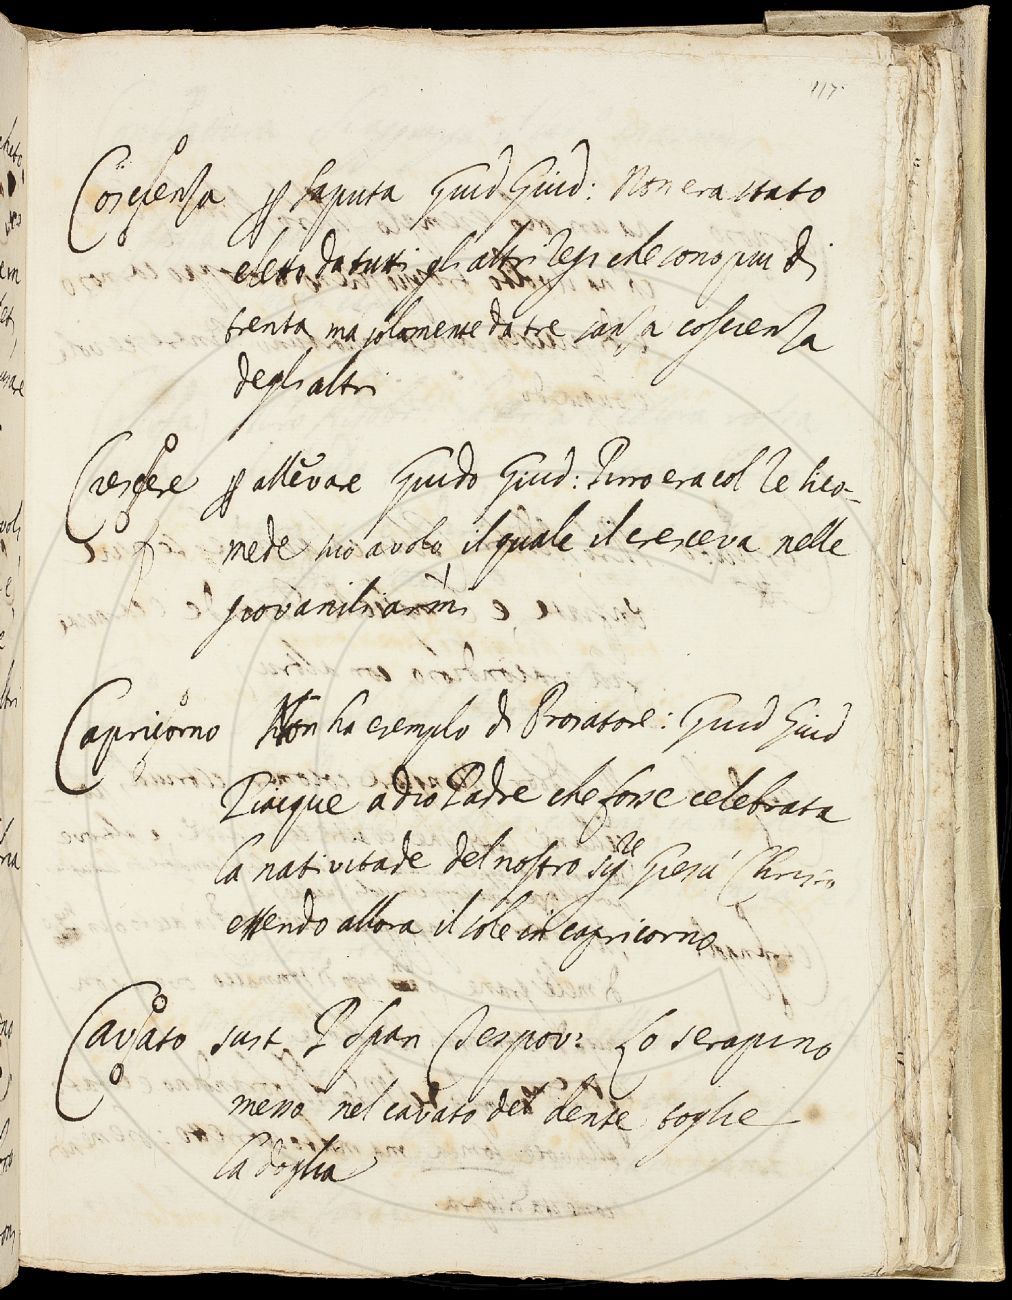 117
Coscienza p saputa Guid Giud: Non era stato
eletto da tutti gli altri Regi che sono piu di
trenta ma solamente da tre sanza coscienza
degli altri
Crescere p allevare Guido Giud: Pirro era col Re lico-
mede suo avolo il quale il cresceva nelle
giovanili armi
Capricorno Non ha esemplo di Prosatore: Guid Giud
Piacque a dio Padre che fosse celebrata
la nativitade del nostro sigre Giesu Christo
essendo allora il sole in capricorno
Cavato sust P Span Tes pov: Lo serapino
messo nel cavato del dente toglie
la doglia